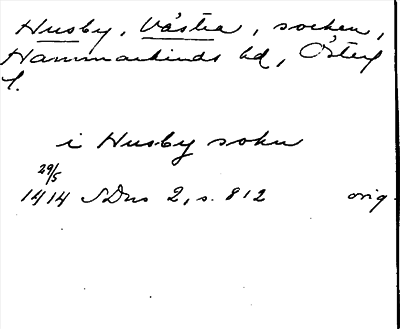 Husby, Västra, socken,
Hammarkinds hd, Österg
l.
i Husby sokn
29/5
1414 SDns 2, s. 812 orig.